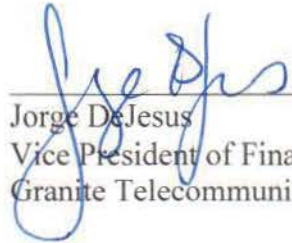 Jorge DeJesus
Vice President of Fina
Granite Telecommuni